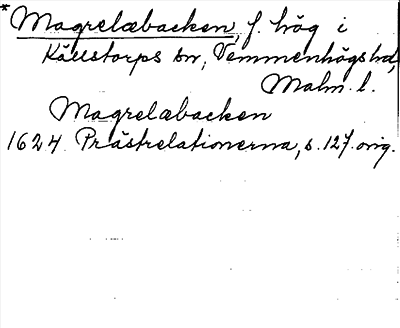 * Magrelæbacken, f. hög i
Källstorps sn, Vemmenhögs hd,
Malm. l.
Magrelæbacken
1624 Prästrelationerna, s. 127. orig.